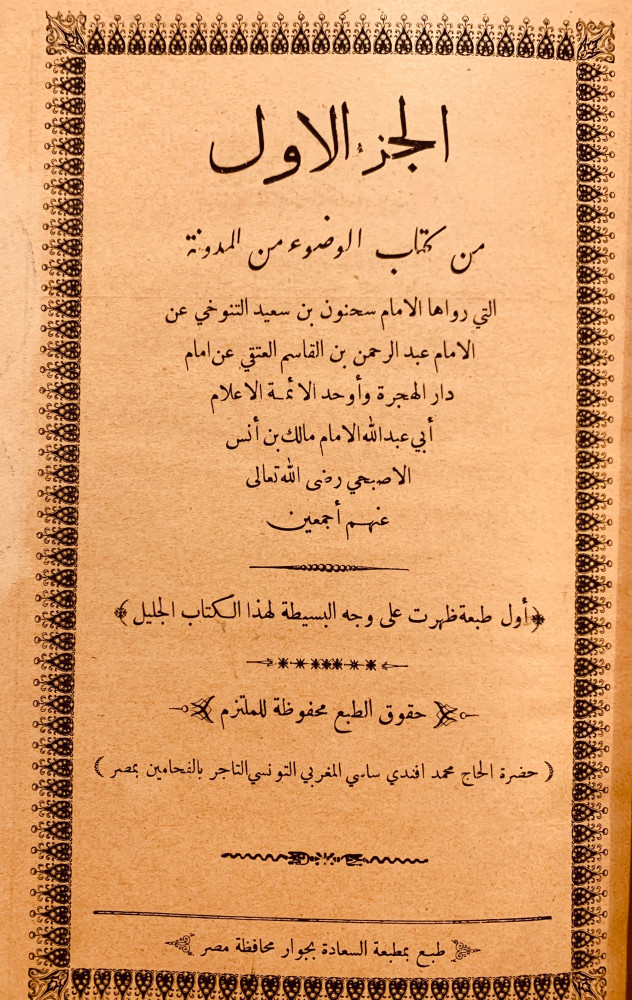 الجزء الاول
من كتاب الوضوء من المدونة
التي رواها الامام سحنون بن سعيد التنوخي عن
الامام عبد الرحمن بن القاسم العتقي عن امام
دار الهجرة وأوحد الائمة الاعلام
أبي عبدالله الامام مالك بن أنس
الاصبحي رضى الله تعالى
عنهم أجمعين
﴿أول طبعة ظهرت على وجه البسيطة لهذا الكتاب الجليل﴾
حقوق الطبع محفوظة للملتزم
( حضرة الحاج محمد افندي ساسي المغربي التونسي التاجر بالفحامين بمصر )
طبع بمطبعة السعادة بجوار محافظة مصر